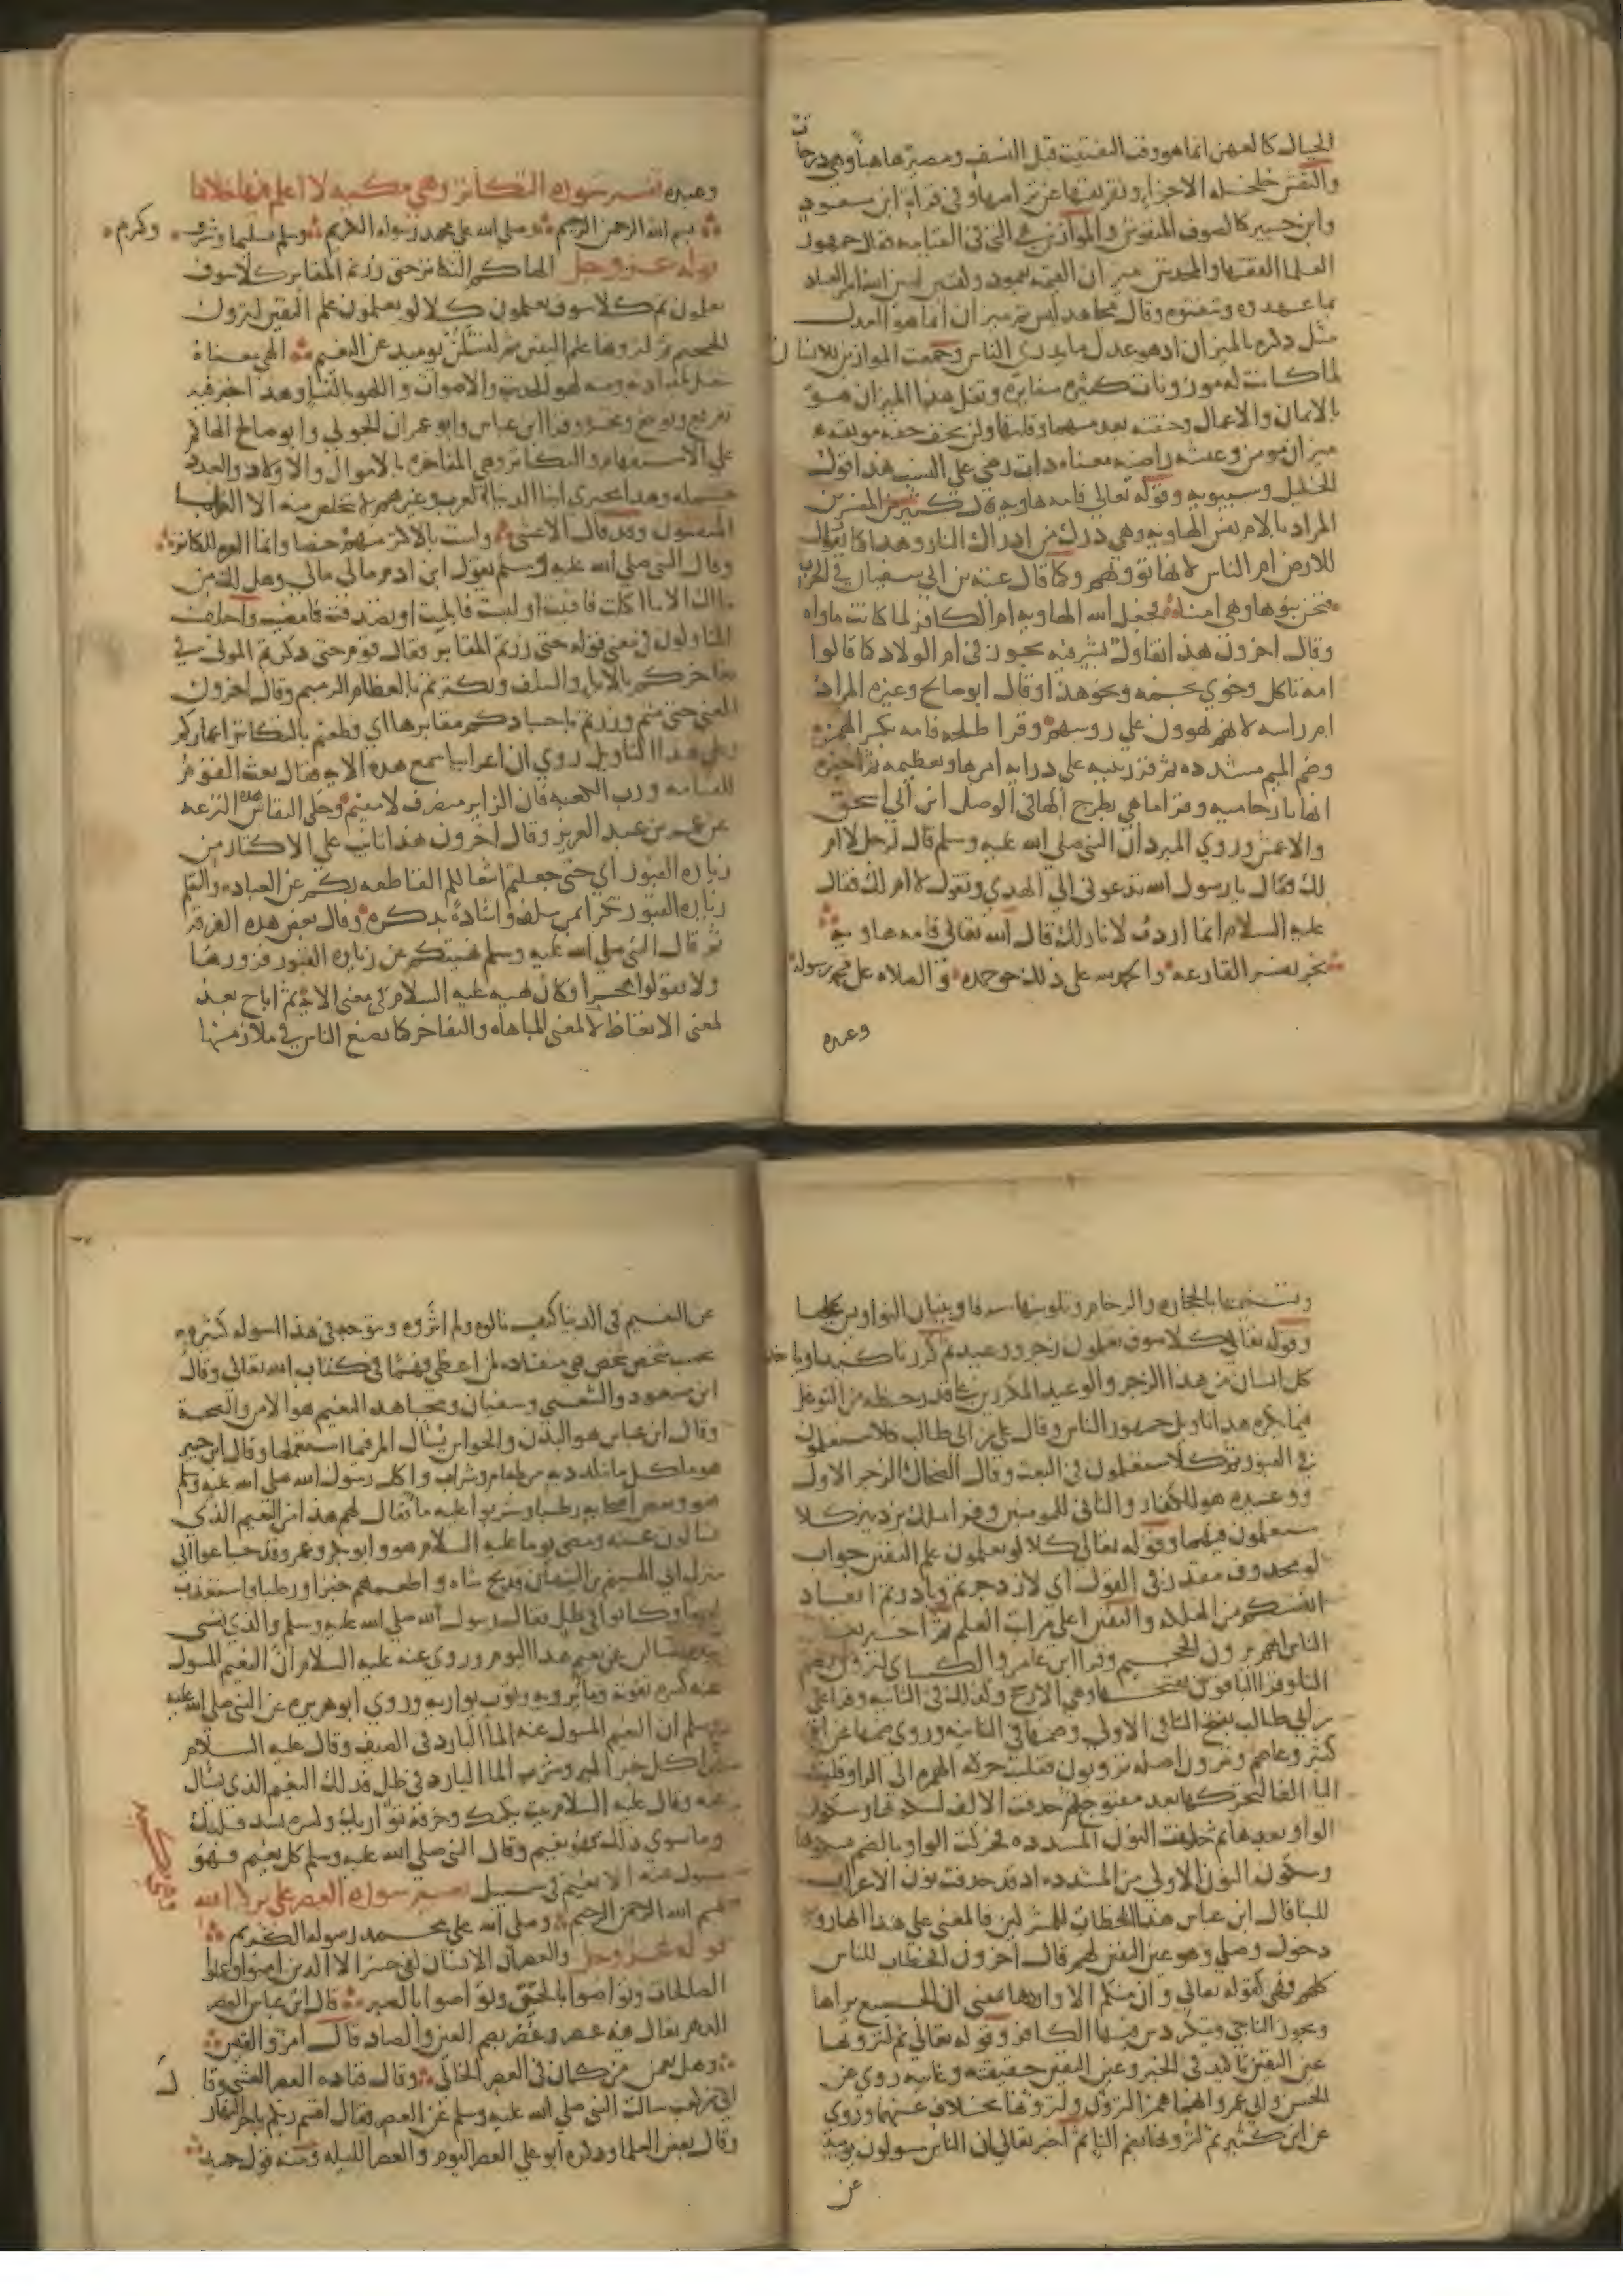 الجبال كالعهن انما هو وقت التفتيت قبل النسف ومصيرها هباء وهي درجات
والنفش خلخلة الاجزاء وتفريقها عن تراصها وفي قراة ابن مسعود
وابن جبير كالصوف المنفوش والموازين هي التي في القيامة فقال جمهور
العلما والفقها والمحدثين ميزان القيمة بعمود وكفتين ليبين الله امر العباد
بما عهدوه وتيقنوه وقال مجاهد ليس ثم ميزان انما هو العدل
مثل ذكره بالميزان اذ هو عدل ما بايدي الناس وجمعت الموازين للانسان
لما كانت له موزونات كثيرة متغايرة وثقل هذا الميزان هو
بالايمان والاعمال وخفته بعدمهما وقلتها ولن يخف خفة موبقة
ميزان مومن وعيشة راضية معناه ذات رضي على النسب هذا قول
الخليل وسيبويه وقوله تعالى فامه هاوية قال كثير من المفسرين
المراد بالام نفس الهاوية وهي درك من ادراك النار وهذا كما يقال
للارض ام الناس لانها تؤويهم وكما قال عتبة بن ابي سفيان في الحرب
فنحن بنوها وهي امنا فجعل الله الهاوية ام الكافر لما كانت ماواه
وقال اخرون هذا تفاول بشر فيه تجوز في ام الولاد كما قالوا
امه ثاكل وخوي نجمه ونحو هذا وقال ابو صالح وغيره المراد
ام راسه لانهم يهوون على روسهم وقرا طلحة فامه بكسر الهمزة
وضم الميم مشددة ثم قرر نبيه على دراية امرها وتعظيمه ثم اخبره
انها نار حامية وقرا ما هي بطرح الهاء في الوصل ابن ابي اسحق
والاعمش وروي المبرد ان النبي صلى الله عليه وسلم قال لرجل لا ام
لك فقال يا رسول الله تدعوني الى الهدي وتقول لا ام لك فقال
عليه السلام انما اردت لا نار لك قال الله تعالى فامه هاوية
نجز تفسير القارعة والحمد لله على ذلك حق حمده والصلاة على محمد رسوله
وعبده
وعبده تفسير سورة التكاثر وهي مكية لا اعلم فيها خلافا
بسم الله الرحمن الرحيم وصلى الله على محمد رسوله الكريم وسلم تسليما وشرف وكرم
قوله عز وجل الهاكم التكاثر حتى زرتم المقابر كلا سوف
تعلمون ثم كلا سوف تعلمون كلا لو تعلمون علم اليقين لترون
الجحيم ثم لترونها عين اليقين ثم لتسئلن يوميذ عن النعيم الهي معناه
شغل بلذاته ومنه لهو الحديث والاصوات واللهو بالنسا وهذا خبر فيه
تقريع وتوبيخ وتحسر وقرا ابن عباس وابو عمران الجوني وابو صالح الهاكم
على الاستفهام والتكاثر هي المفاخرة بالاموال والاولاد والعدد
جملة وهذا هجيري ابنا الدنيا العرب وغيرهم لا يتخلص منه الا العلما
المتقون وقد قال الاعشى ولست بالاكثر منهم حصا وانما العزة للكاثر
وقال النبي صلى الله عليه وسلم يقول ابن ادم مالي مالي وهل لك من
مالك الا ما اكلت فافنيت او لبست فابليت او تصدقت فامضيت واختلف
المتاولون في معنى قوله حتى زرتم المقابر فقال قوم حتى ذكرتم الموتى في
تفاخركم بالابا والسلف وتكثرتم بالعظام الرميم وقال اخرون
المعنى حتى متم وزرتم باجسادكم مقابرها اي قطعتم بالتكاثر اعماركم
وعلى هذا التاويل روي ان اعرابيا سمع هذه الاية فقال بعث القوم
للقيامة ورب الكعبة فان الزاير منصرف لا مقيم وحكى النقاش هذه النزعة
عن عمر بن عبد العزيز وقال اخرون هذا تانيب على الاكثار من
زيارة القبور اي حتى جعلتم اشغالكم القاطعة بكم عن العبادة والتعلم
زيارة القبور تكثرا بمن سلف واشادة بذكره وقال بعض هذه الفرقة
ثم قال النبي صلى الله عليه وسلم نهيتكم عن زيارة القبور فزوروها
ولا تقولوا هجرا وكان نهيه عليه السلام في معنى الاية ثم اباح بعد
لمعنى الاتعاظ لا لمعنى المباهاة والتفاخر كما يصنع الناس في ملازمتها
وتسنيمها بالحجارة والرخام وتلوينها سرفا وبنيان النواويس عليها
وقوله تعالى كلا سوف تعلمون زجر ووعيد ثم كرر تاكيدا وياخذ
كل انسان من هذا الزجر والوعيد المكررين على قدر حظه من التوغل
فيما يكره هذا تاويل جمهور الناس وقال علي بن ابي طالب كلا ستعلمون
في القبور ثم كلا ستعلمون في البعث وقال الضحاك الزجر الاول
ووعيده هو للكفار والثاني للمومنين وقرا مالك بن دينار كلا
ستعلمون فيهما وقوله تعالى كلا لو تعلمون علم اليقين جواب
لو محذوف مقدر في القول اي لازدجرتم وبادرتم انقاذ
انفسكم من الهلكة واليقين اعلى مراتب العلم ثم اخبر تعالى
الناس انهم يرون الجحيم وقرا ابن عامر والكساي لترون بضم
التا وقرا الباقون بفتحها وهي الارجح وكذلك في الثانية وقرا علي
بن ابي طالب بفتح التا في الاولى وضمها في الثانية وروي ضمها عن ابن
كثير وعاصم وترون اصله ترويون نقلت حركة الهمزة الى الرا وقلبت
اليا الفا لتحركها بعد مفتوح ثم حذفت الالف لسكونها وسكون
الواو بعدها ثم جلبت النون المشددة فحركت الواو بالضم
وسكون النون الاولى من المشددة اذ قد حذفت نون الاعراب
للبنا قال ابن عباس هذا الخطاب للمشركين فالمعنى على هذا انها روية
دخول وصلي وهو عين اليقين لهم وقال اخرون الخطاب للناس
كلهم فهي كقوله تعالى وان منكم الا واردها فمعنى ان الجميع يراها
ويجوز الناجي ويتكردس فيها الكافر وقوله تعالى ثم لترونها
عين اليقين تاكيد في الخبر وعين اليقين حقيقته وغايته روي عن
الحسن وابي عمرو انهما همزا لترؤن ولترؤنها بخلاف عنهما وروي
عن ابن كثير ثم لترونها بضم التا ثم اخبر تعالى ان الناس مسولون يوميذ
عن
عن النعيم في الدنيا كيف نالوه ولم اثروه ويتوجه في هذا السوال اسولة كثيرة
بحسب شخص شخص هي منقادة لمن اعطي فهما في كتاب الله تعالى وقال
ابن مسعود والشعبي وسفيان ومجاهد النعيم هو الامن والصحة
وقال ابن عباس هو البدن والحواس يسال المرء فيما استعملها وقال ابن جبير
هو ما كل ما يتلذذ به من طعام وشراب واكل رسول الله صلى الله عليه وسلم
هو وبعض اصحابه رطبا وشربوا عليه ما فقال لهم هذا من النعيم الذي
تسالون عنه ومضى يوما عليه السلام هو وابو بكر وعمر وقد جاعوا الى
منزل ابي الهيثم بن التيهان فذبح شاة واطعمهم خبزا ورطبا واستعذب
لهم ما وكانوا في ظل فقال رسول الله صلى الله عليه وسلم والذي نفسي
بيده لتسالن عن نعيم هذا اليوم وروي عنه عليه السلام ان النعيم المسول
عنه كسرة تقوته وما يرويه وثوب يواريه وروي ابو هريرة عن النبي صلى الله عليه
وسلم ان النعيم المسول عنه الما البارد في الصيف وقال عليه السلام
من اكل خبز البر وشرب الما البارد في ظل فذلك النعيم الذي يسال
عنه وقال عليه السلام بيت يكنك وخرقة تواريك وكسرة تشد قلبك
وما سوي ذلك فهو نعيم وقال النبي صلى الله عليه وسلم كل نعيم فهو
مسول عنه الا نعيم في سبيل الله تفسير سورة العصر
بسم الله الرحمن الرحيم وصلى الله على محمد رسوله الكريم
قوله عز وجل والعصر ان الانسان لفي خسر الا الذين امنوا وعملوا
الصالحات وتواصوا بالحق وتواصوا بالصبر قال ابن عباس العصر
الدهر يقال فيه عصر وعصر بضم العين والصاد قال امرؤ القيس
وهل يعمن من كان في العصر الخالي وقال قتادة العصر العشي وقال
ابي بن كعب سالت النبي صلى الله عليه وسلم عن العصر فقال اقسم ربكم باخر النهار
وقال بعض العلما وذكره ابو علي العصر اليوم والعصر الليلة ومنه قول حميد